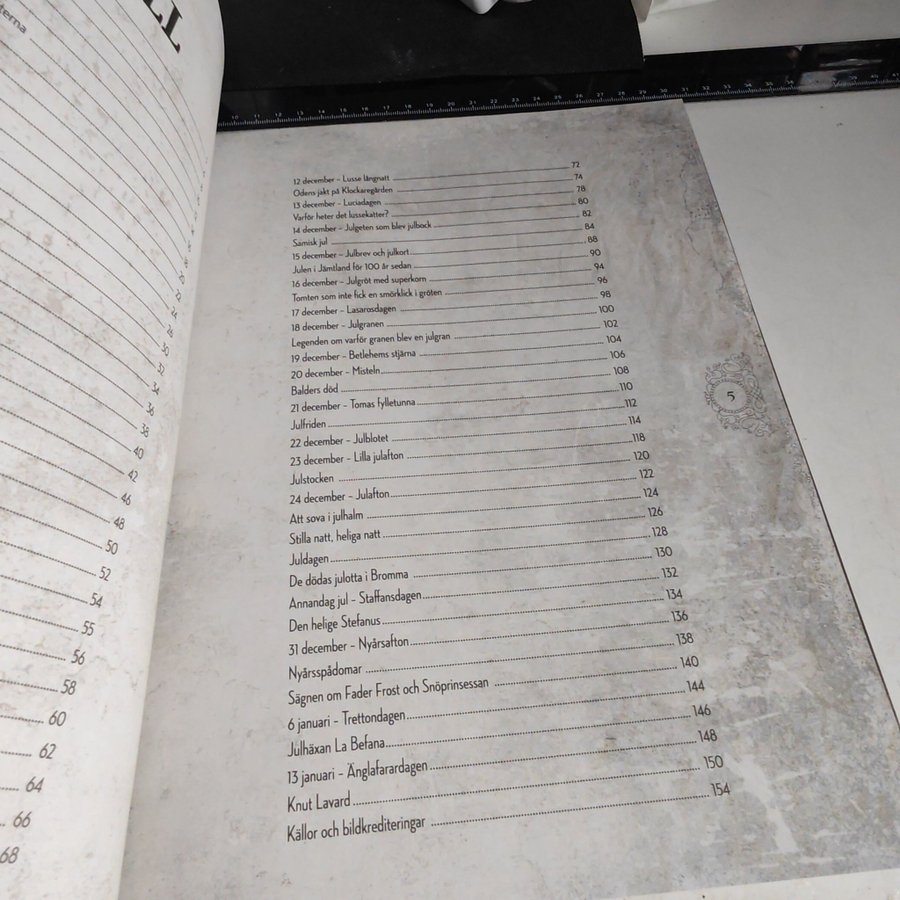 10 11 12 13 14 15 16 17 18 19 20 21 22 23 24 25 26 27 28 29 30 31 32 33 34 35
terna
22
24
26
30
32
34
36
38
40
42
46
48
50
52
54
55
56
58
60
62
64
66
68
12 december – Lusse långnatt 72
Odens jakt på Klockaregården 74
13 december – Luciadagen 78
Varför heter det lussekatter? 80
14 december – Julgeten som blev julbock 82
Samisk jul 84
15 december – Julbrev och julkort 88
Julen i Jämtland för 100 år sedan 90
16 december – Julgröt med superkorn 94
Tomten som inte fick en smörklick i gröten 96
17 december – Lasarosdagen 98
18 december – Julgranen 100
Legenden om varför granen blev en julgran 102
19 december – Betlehems stjärna 104
20 december – Misteln 106
Balders död 108
21 december – Tomas fylletunna 110
Julfriden 112
22 december – Julblotet 114
23 december – Lilla julafton 118
Julstocken 120
24 december – Julafton 122
Att sova i julhalm 124
Stilla natt, heliga natt 126
Juldagen 128
De dödas julotta i Bromma 130
Annandag jul – Staffansdagen 132
Den helige Stefanus 134
31 december – Nyårsafton 136
Nyårsspådomar 138
Sägnen om Fader Frost och Snöprinsessan 140
6 januari – Trettondagen 144
Julhäxan La Befana 146
13 januari – Änglafarardagen 148
Knut Lavard 150
Källor och bildkrediteringar 154
5